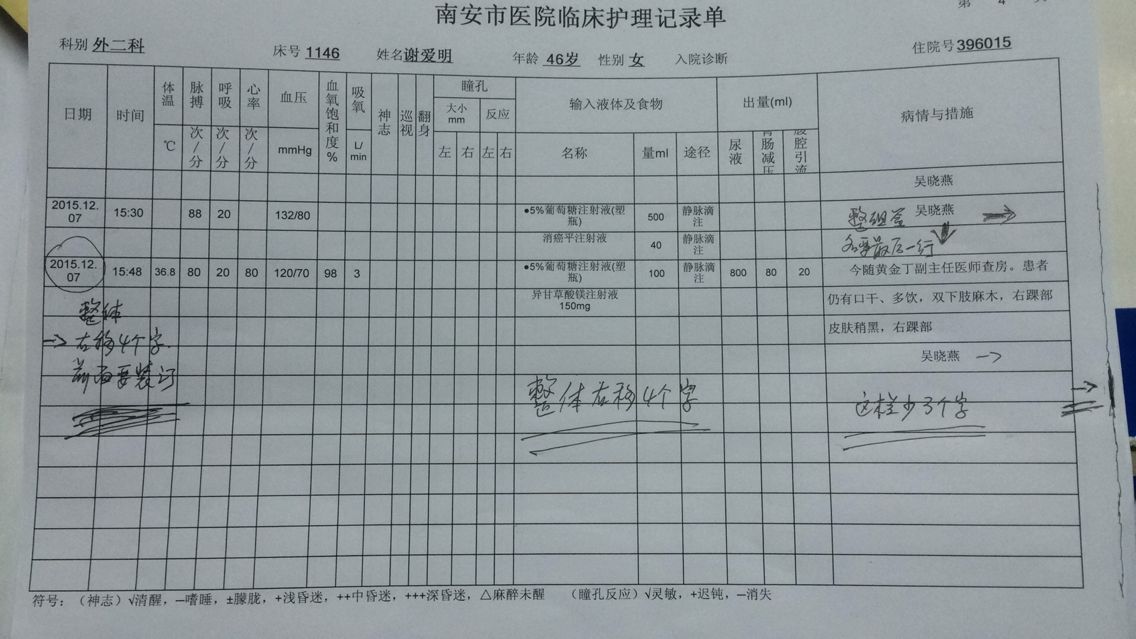 南安市医院临床护理记录单
第 4
科别 外二科 床号 1146 姓名 谢爱明 年龄 46岁 性别 女 入院诊断 住院号 396015
日期 时间 体温 ℃ 脉搏 次/分 呼吸 次/分 心率 次/分 血压 mmHg 血氧饱和度% 吸氧 L/min 神志 巡视 翻身 瞳孔 大小mm 左 右 反应 左 右 输入液体及食物 名称 量ml 途径 出量(ml) 尿液 胃肠减压 腹腔引流 病情与措施
吴晓燕
2015.12.07 15:30 88 20 132/80 ●5%葡萄糖注射液(塑瓶) 500 静脉滴注 吴晓燕
整组签 →
消癌平注射液 40 静脉滴注
各要最后一行
2015.12.07 15:48 36.8 80 20 80 120/70 98 3 ●5%葡萄糖注射液(塑瓶) 100 静脉滴注 800 80 20 今随黄金丁副主任医师查房。患者
异甘草酸镁注射液150mg 仍有口干、多饮，双下肢麻木，右踝部
皮肤稍黑，右踝部
吴晓燕 →
整体
→右移4个字.
前面要装订
整体右移4个字
这样少了个字
→
符号：（神志）√清醒，—嗜睡，±朦胧，+浅昏迷，++中昏迷，+++深昏迷，△麻醉未醒 （瞳孔反应）√灵敏，+迟钝，—消失